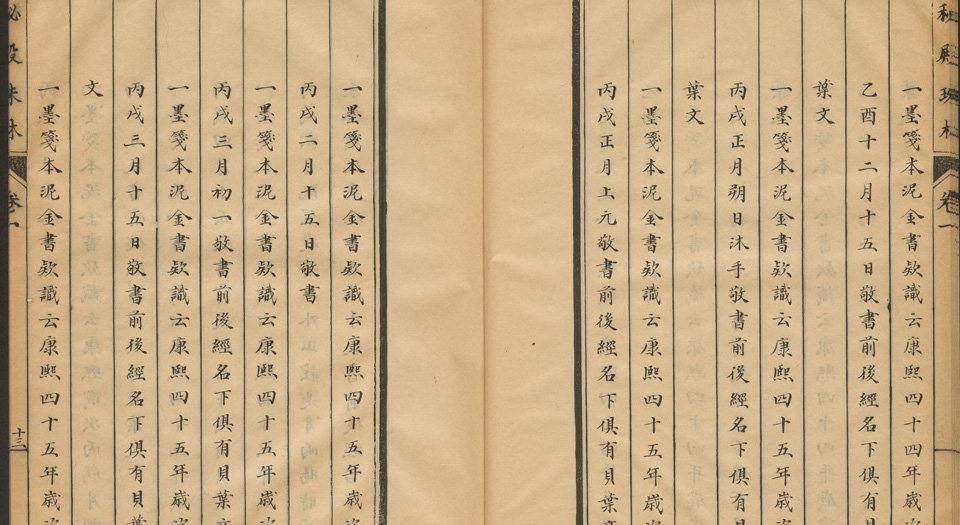 秘殿珠林 卷一
一墨箋本泥金書欵識云康熙四十四年歲次
乙酉十二月十五日敬書前後經名下俱有貝
葉文
一墨箋本泥金書欵識云康熙四十五年歲次
丙戌正月朔日沐手敬書前後經名下俱有貝
葉文
一墨箋本泥金書欵識云康熙四十五年歲次
丙戌正月上元敬書前後經名下俱有貝葉文
一墨箋本泥金書欵識云康熙四十五年歲次
丙戌二月十五日敬書
一墨箋本泥金書欵識云康熙四十五年歲次
丙戌三月初一敬書前後經名下俱有貝葉文
一墨箋本泥金書欵識云康熙四十五年歲次
丙戌三月十五日敬書前後經名下俱有貝葉
文
一墨箋本泥金書欵識云康熙四十五年歲次
秘殿珠林 卷一 十三